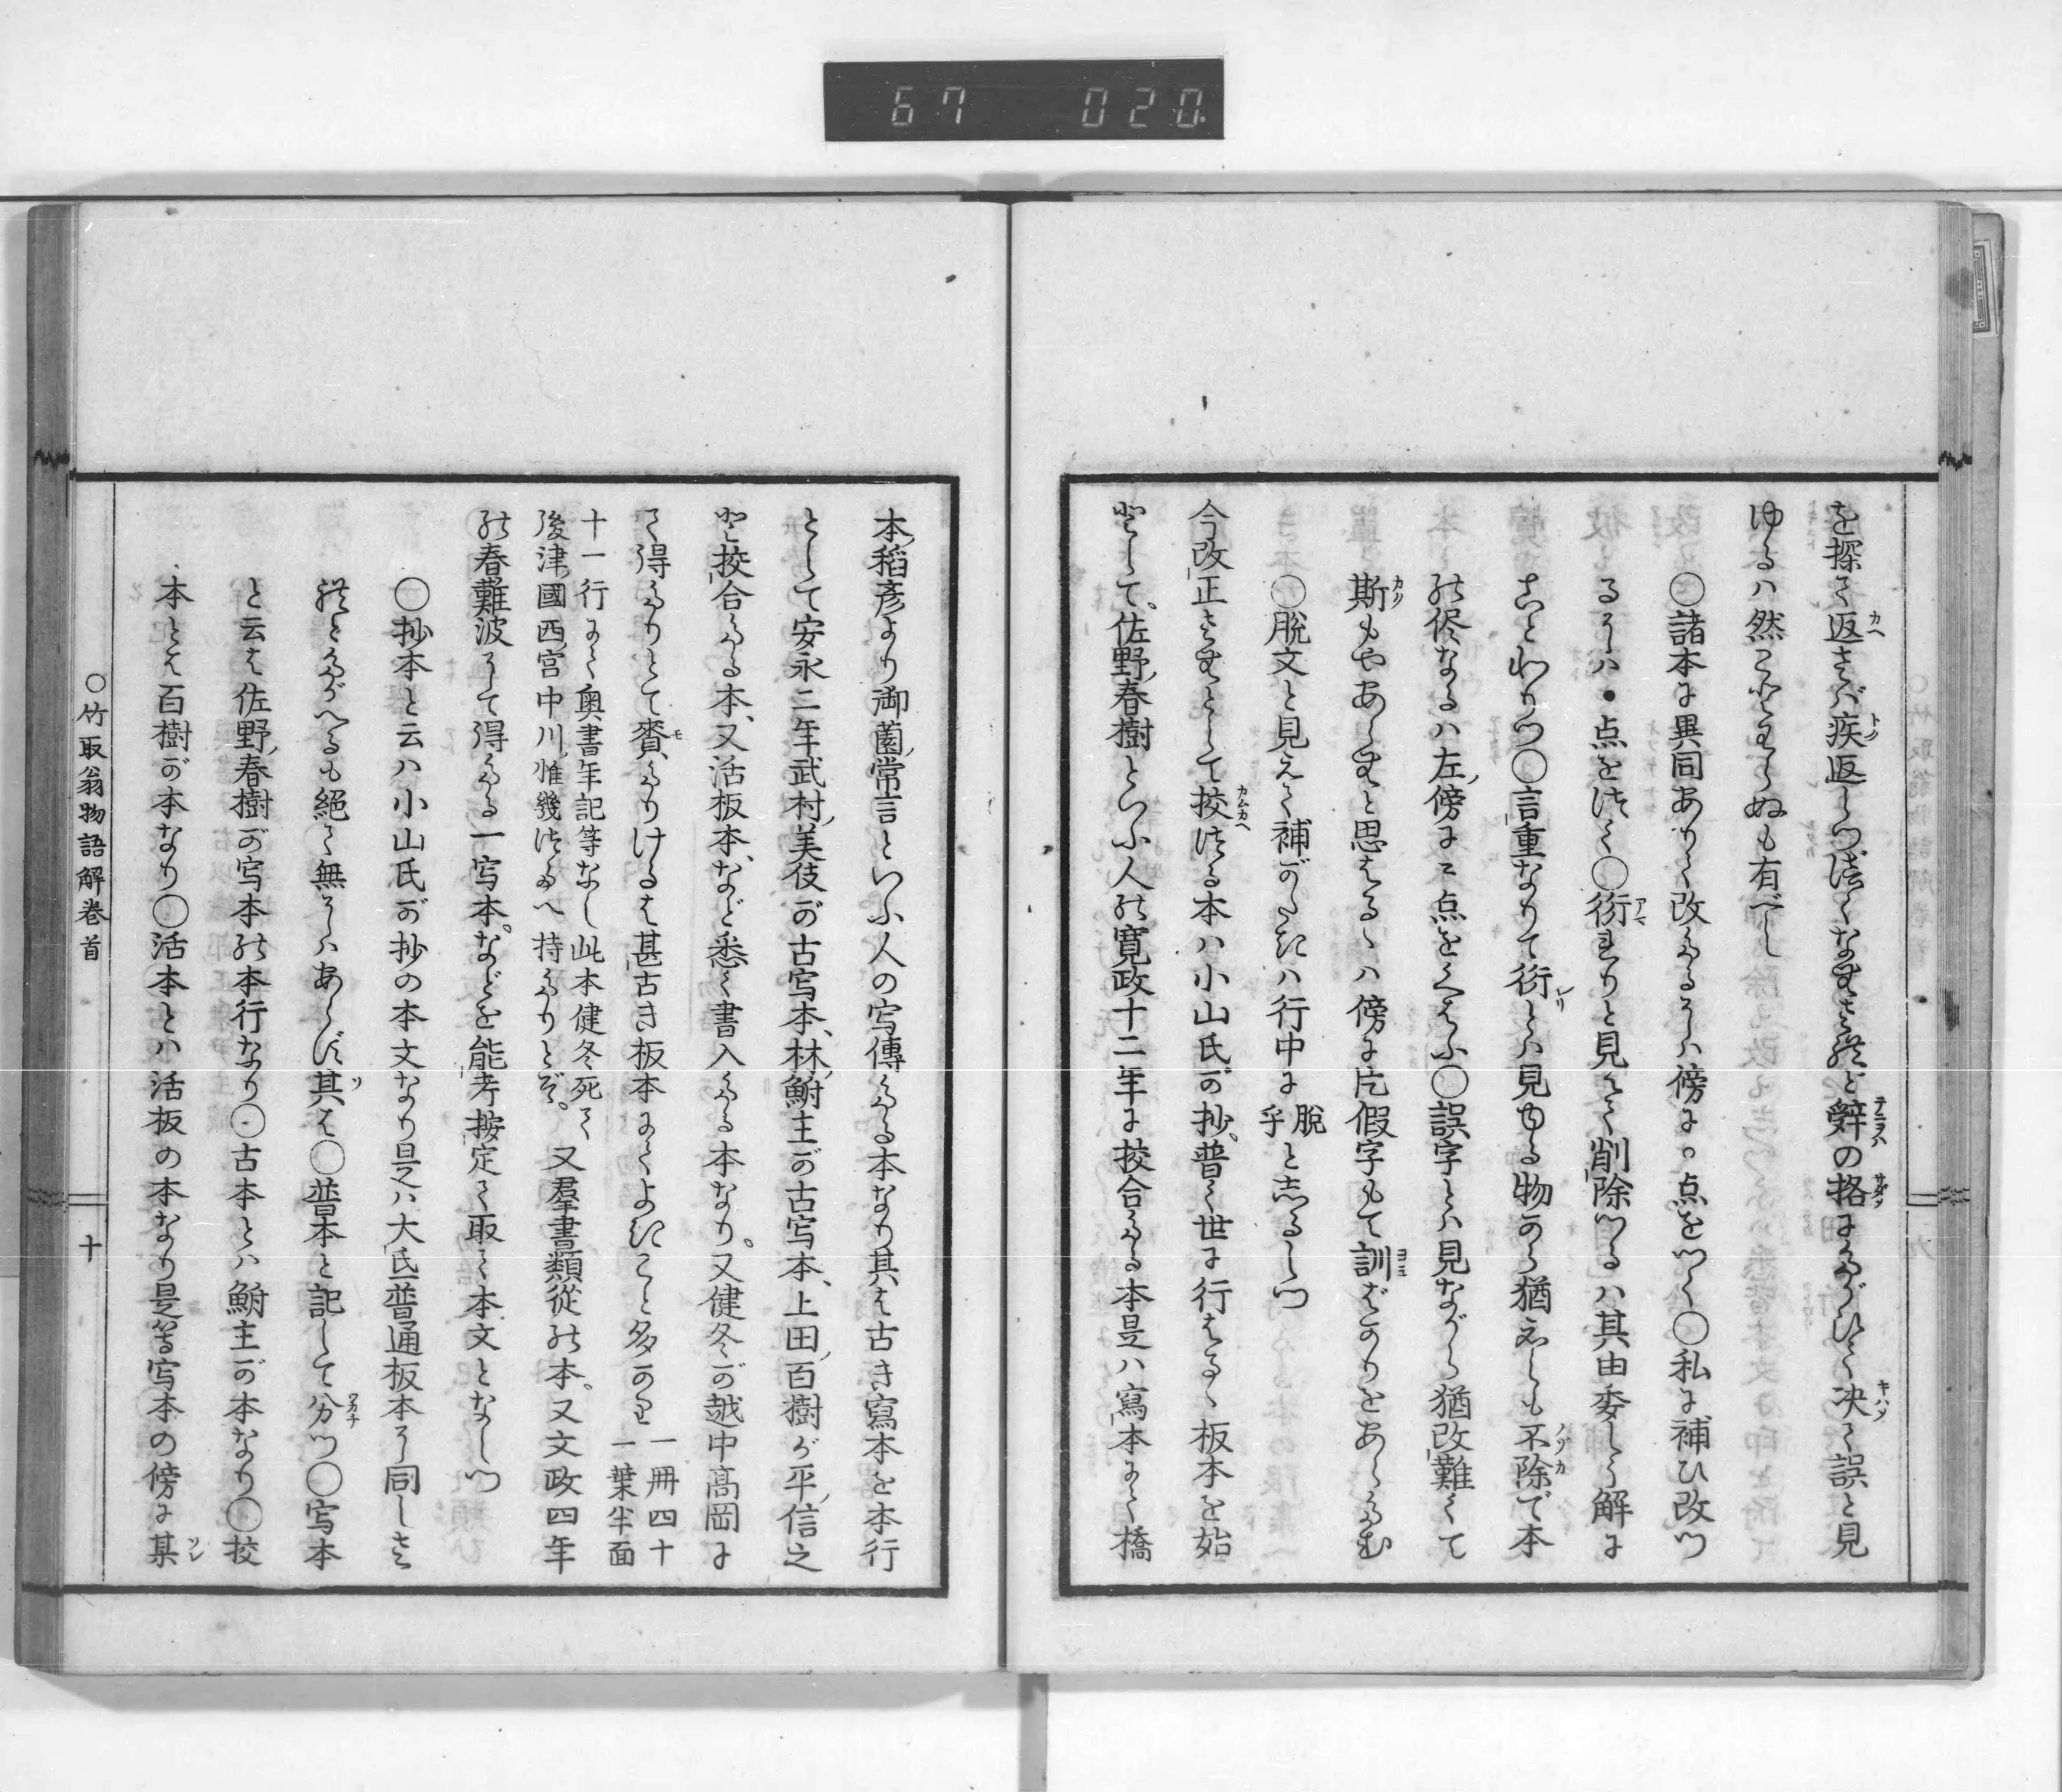 67 020
を探て返さバ疾返しつ淺くなすされど辭の格にたがひて决て誤と見
ゆるハ然こともしらぬも有べし
○諸本に異同ありて改たるをハ傍に○点をつく○私に補ひ改つ
るをハ●点を活て○衍まりと見えて削除つるハ其由委しう解に
ことわりつ○言重なりて衍とハ見ゆる物から猶必しも不除で本
の侭なるハ左傍にヒ点をくはふ○誤字とハ見ながら猶改難くて
斯もやあらむと思はるゝハ傍に片假字もて訓ばかりをあらたむ
○脱文と見えて補がたきハ行中に脱乎と志るしつ
今改正さむとして挍つる本ハ小山氏が抄。普く世に行はるゝ板本を始
として、佐野春樹といふ人の寛政十二年に挍合たる本是ハ寫本にて橋
本稻彦より御薗常言といふ人の写傳へたる本なり其は古き寫本を本行
として安永二年武村美伎が古写本、林鮒主が古写本、上田百樹が平信之
と挍合たる本、又活板本、など悉く書入たる本なり。又健冬が越中高岡に
て得たりとて賚たりけるは甚古き板本にてよきこと多かり一冊四十一葉半面
十一行にて奥書年記等なし此本健冬死て
後津國西宮中川惟幾つたへ持たりとぞ。又羣書類從の本。又文政四年
の春難波にて得たる一写本。などを能考按定て取て本文となしつ
○抄本と云ハ小山氏が抄の本文なり是ハ大氐普通板本に同しさ
れとたがへるも絕て無にハあらず其は○普本と記して分つ○写本
と云は佐野春樹が写本の本行なり○古本とハ鮒主が本なり○挍
本とは百樹が本なり○活本とハ活板の本なり是等写本の傍に某
○竹取翁物語解卷首
十